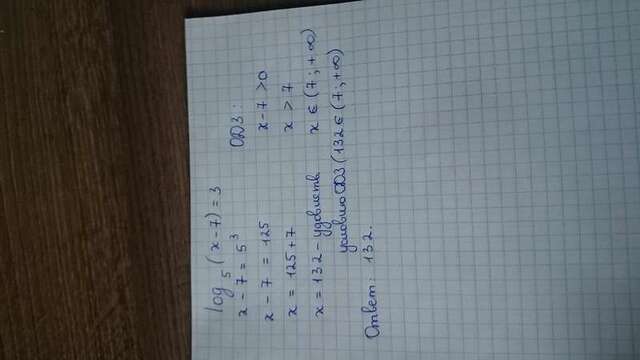 log₅(x-7)=3
x-7=5³
x-7=125
x=125+7
x=132-удовлетв.
условию ОДЗ(132∈(7;+∞)
ОДЗ:
x-7>0
x>7
x∈(7;+∞)
Ответ: 132.